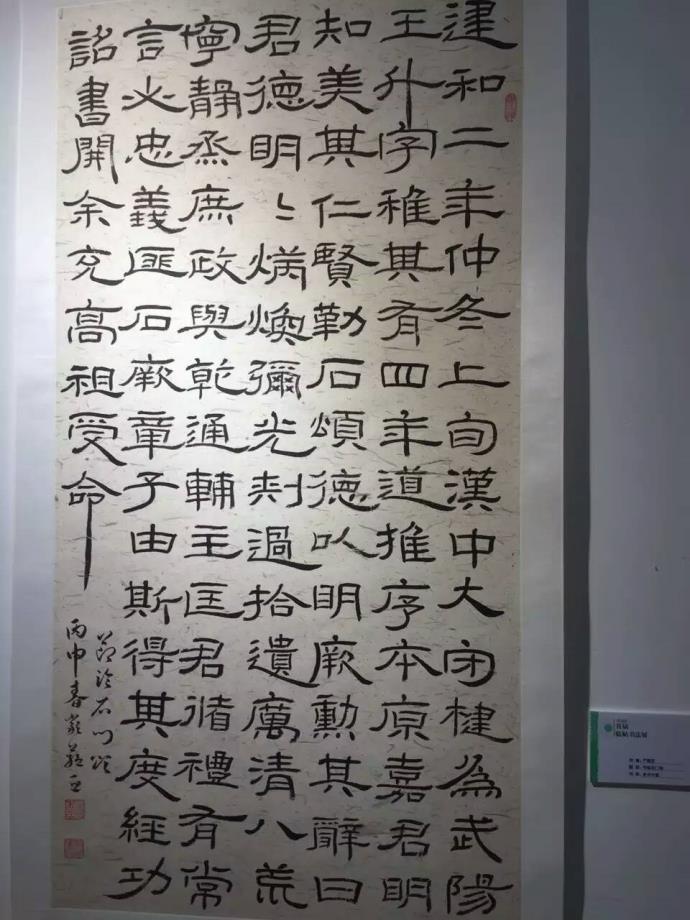 建和二年仲冬上旬漢中大守楗為武陽
王升字稚其有四年道推序本原嘉君明
知美其仁賢勒石頌德以明厥勳其辭曰
君德明〻炳煥彌光刺過拾遺厲清八荒
寧靜烝庶政與乾通輔主匡君循禮有常
言必忠義匪石厥章子由斯得其度經功
詔書開余充高祖受命
節臨石門頌
丙申春嚴
首届
临帖书法展